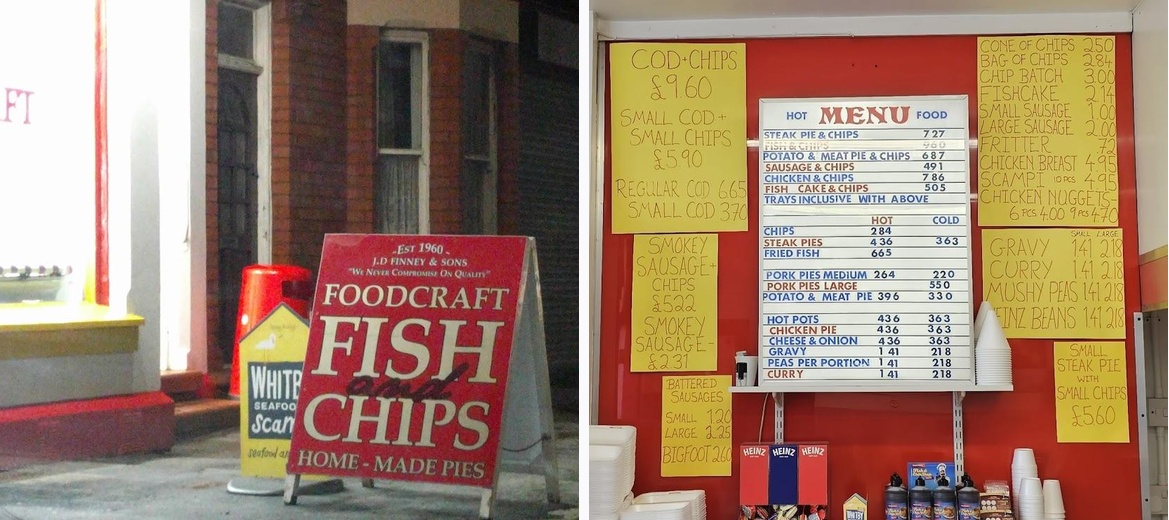 FT
.Est 1960.
J.D FINNEY & SONS
"WE NEVER COMPROMISE ON QUALITY"
FOODCRAFT
FISH
and
CHIPS
HOME - MADE PIES
WHITB
SEAFOO
scam
seafood an
COD+CHIPS
£9.60
SMALL COD+
SMALL CHIPS
£5.90
REGULAR COD 665
SMALL COD 370
SMOKEY
SAUSAGE+
CHIPS
£5.22
SMOKEY
SAUSAGE-
£2.31
BATTERED
SAUSAGES
SMALL 1.20
LARGE 2.25
BIGFOOT 2.60
HOT MENU FOOD
STEAK PIE & CHIPS 7 27
FISH & CHIPS 960
POTATO & MEAT PIE & CHIPS 687
SAUSAGE & CHIPS 491
CHICKEN & CHIPS 786
FISH CAKE & CHIPS 505
TRAYS INCLUSIVE WITH ABOVE
HOT COLD
CHIPS 284
STEAK PIES 436 363
FRIED FISH 665
PORK PIES MEDIUM 264 220
PORK PIES LARGE 550
POTATO & MEAT PIE 396 330
HOT POTS 436 363
CHICKEN PIE 436 363
CHEESE & ONION 436 363
GRAVY 1 41 218
PEAS PER PORTION 1 41 218
CURRY 1 41 218
CONE OF CHIPS 2.50
BAG OF CHIPS 2.84
CHIP BATCH 3.00
FISHCAKE 2.14
SMALL SAUSAGE 1.00
LARGE SAUSAGE 2.00
FRITTER 72
CHICKEN BREAST 4.95
SCAMPI 10 PCS 4.95
CHICKEN NUGGETS
6 PCS 4.00 9 PCS 4.70
SMALL LARGE
GRAVY 1.41 2.18
CURRY 1.41 2.18
MUSHY PEAS 1.41 2.18
HEINZ BEANS 1.41 2.18
SMALL
STEAK PIE
WITH
SMALL CHIPS
£5.60
HEINZ HEINZ HEINZ